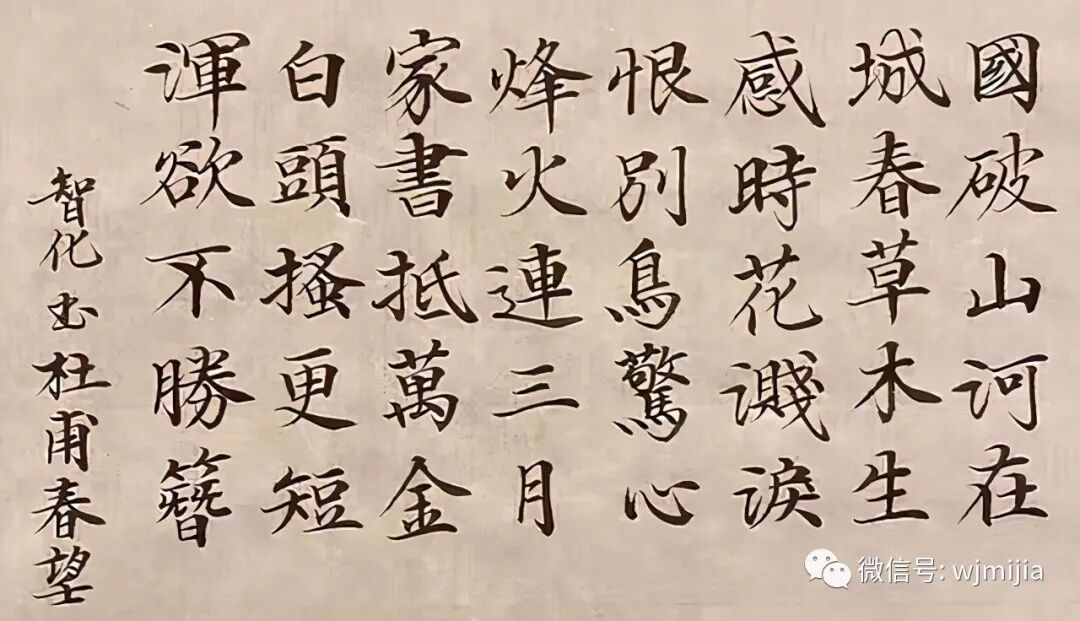 國破山河在
城春草木生
感時花濺淚
恨別鳥驚心
烽火連三月
家書抵萬金
白頭搔更短
渾欲不勝簪
智化书杜甫春望
微信号: wjmijia